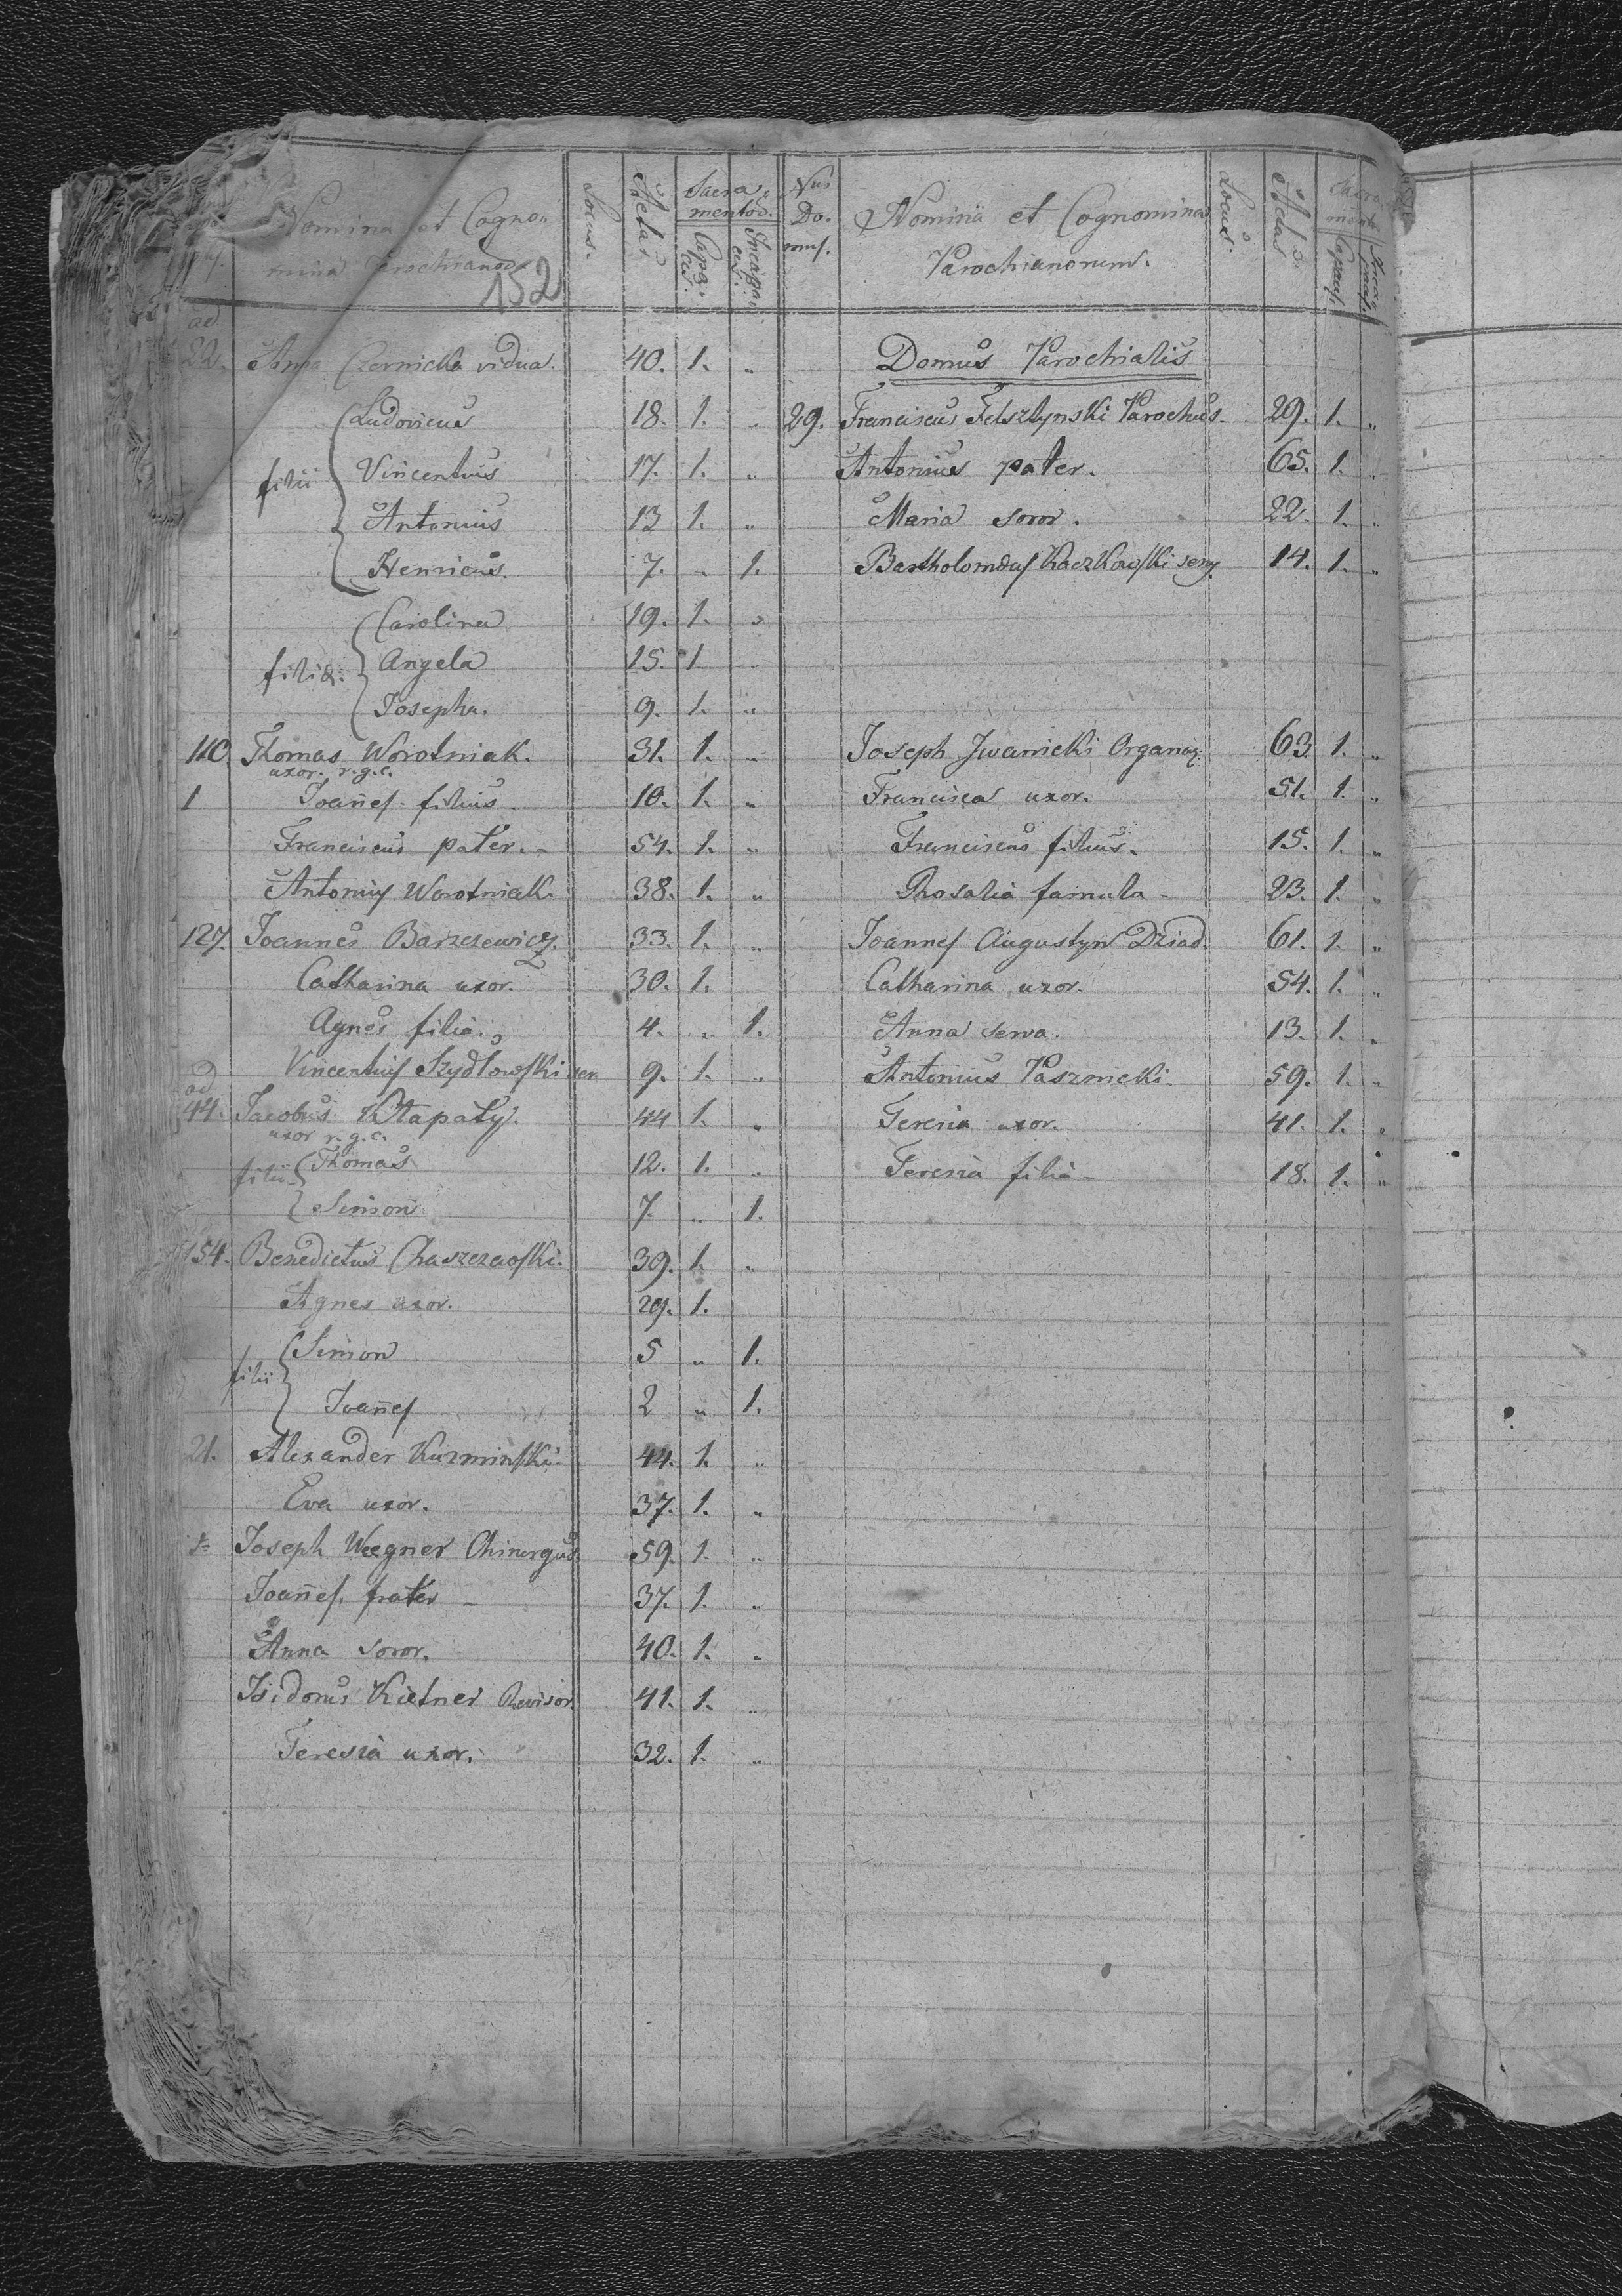 Nomina et Cogno„
mina Parochianor.
152
Locus.
Aetas
Sacra„
mentor.
Capa„
ces.
Incapa„
ces.
Nus
Do„
mus.
Nomina et Cognomina
Parochianorum.
Locus.
Aetas
Sacra
ment
Capaces.
Incapaces.
ad
22. Anna Czernicka vidua. 40. 1. „
filii
Ludovicus 18. 1. „
Vincentius 17. 1. „
Antonius 13 1. „
Henricus. 7. „ 1.
filiæ:
Carolina 19. 1. „
Angela 15. 1 „
Josepha. 9. 1. „
110. Thomas Worotniak. 31. 1. „
uxor. r.g.c.
1 Joan̄es filius 10. 1. „
Franciscus pater. 54. 1. „
Antonius Worotniak. 38. 1. „
127. Joannes Barszczewicz. 33. 1. „
Catharina uxor. 30. 1.
Agnes filia. 4. „ 1.
Vincentius Szydłowski ser. 9. 1. „
ad
44. Jacobus Kłapaty. 44 1. „
uxor r.g.c.
filii
Thomas 12. 1. „
Simon 7. „ 1.
154. Benedictus Chaszczewski. 39. 1. „
Agnes uxor. 29. 1.
filii
Simon 5 „ 1.
Joan̄es 2 „ 1.
21. Alexander Kuzminski 44. 1. „
Eva uxor. 37. 1. „
Joseph Wegner Chirurgus. 59. 1. „
Joan̄es. frater 37. 1. „
Anna soror. 40. 1. „
Isidorus Kietner Revisor. 41. 1. „
Teresia uxor. 32. 1. „
Domus Parochialis
29. Franciscus Felsztynski Parochus. 29. 1. „
Antonius pater. 65. 1. „
Maria soror. 22. 1. „
Bartholomæus Kaczkowski serv. 14. 1. „
Joseph Jwanicki Organar. 63. 1. „
Francisca uxor. 51. 1. „
Franciscus filius. 15. 1. „
Rhosalia famula 23. 1. „
Joannes Augustyn Dziad. 61. 1. „
Catharina uxor. 54. 1. „
Anna serva. 13. 1. „
Antonius Pasznicki. 59. 1. „
Teresia uxor. 41. 1. „
Teresia filia 18. 1. „